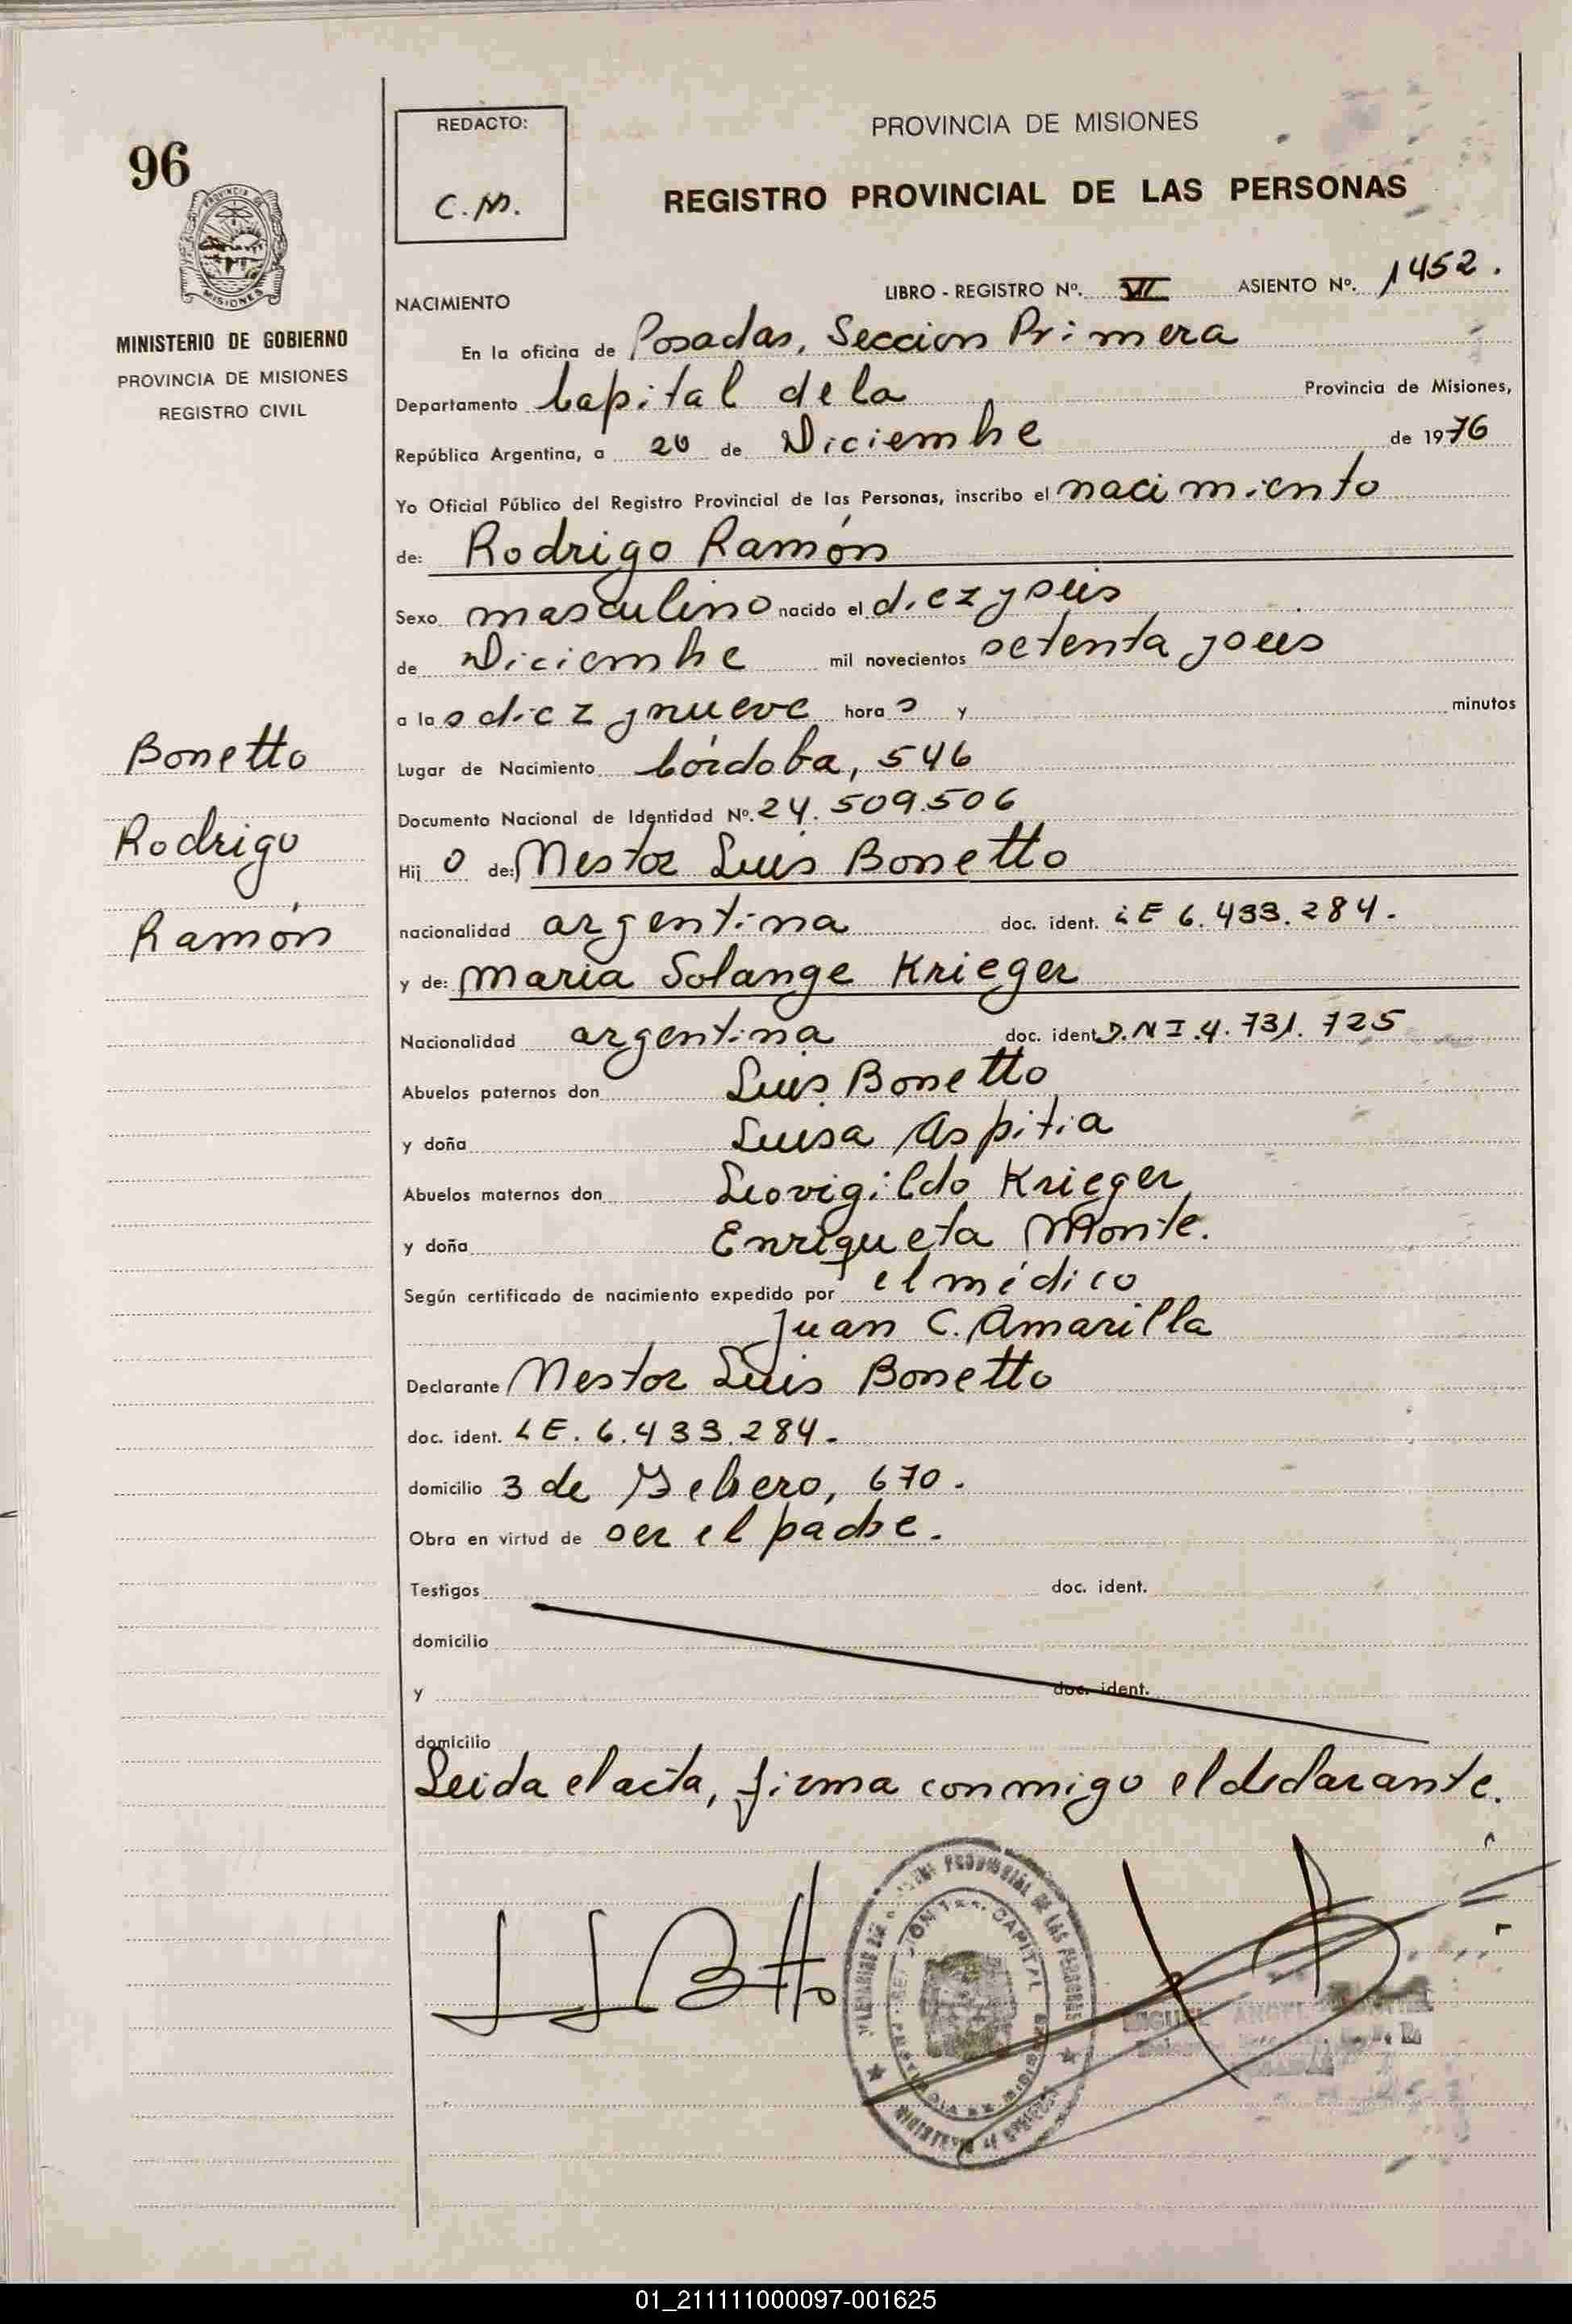 96
PROVINCIA DE MISIONES
MINISTERIO DE GOBIERNO
PROVINCIA DE MISIONES
REGISTRO CIVIL
Bonetto
Rodrigo
Ramón
REDACTO:
C. M.
PROVINCIA DE MISIONES
REGISTRO PROVINCIAL DE LAS PERSONAS
LIBRO - REGISTRO Nº. VI ASIENTO Nº. 1452.
NACIMIENTO
En la oficina de Posadas, Seccion Primera
Departamento Capital de la Provincia de Misiones,
República Argentina, a 20 de Diciembre de 1976
Yo Oficial Público del Registro Provincial de las Personas, inscribo el nacimiento
de: Rodrigo Ramón
Sexo masculino nacido el diez y seis
de Diciembre mil novecientos setenta y seis
a las diez y nueve horas y minutos
Lugar de Nacimiento Córdoba, 546
Documento Nacional de Identidad Nº. 24.509.506
Hijo de: Nestor Luis Bonetto
nacionalidad argentina doc. ident. LE 6.433.284.
y de: Maria Solange Krieger
Nacionalidad argentina doc. ident. D.N I.4.731.725
Abuelos paternos don Luis Bonetto
y doña Luisa Aspitia
Abuelos maternos don Leovigildo Krieger
y doña Enriqueta Monte.
Según certificado de nacimiento expedido por el médico
Juan C. Amarilla
Declarante Nestor Luis Bonetto
doc. ident. LE. 6.433.284.
domicilio 3 de Febrero, 670.
Obra en virtud de ser el padre.
Testigos doc. ident.
domicilio
y doc. ident.
domicilio
Leida el acta, firma conmigo el declarante.
PROVINCIAL DE LAS PERSONAS
CAPITAL
ANGEL
01_211111000097-001625